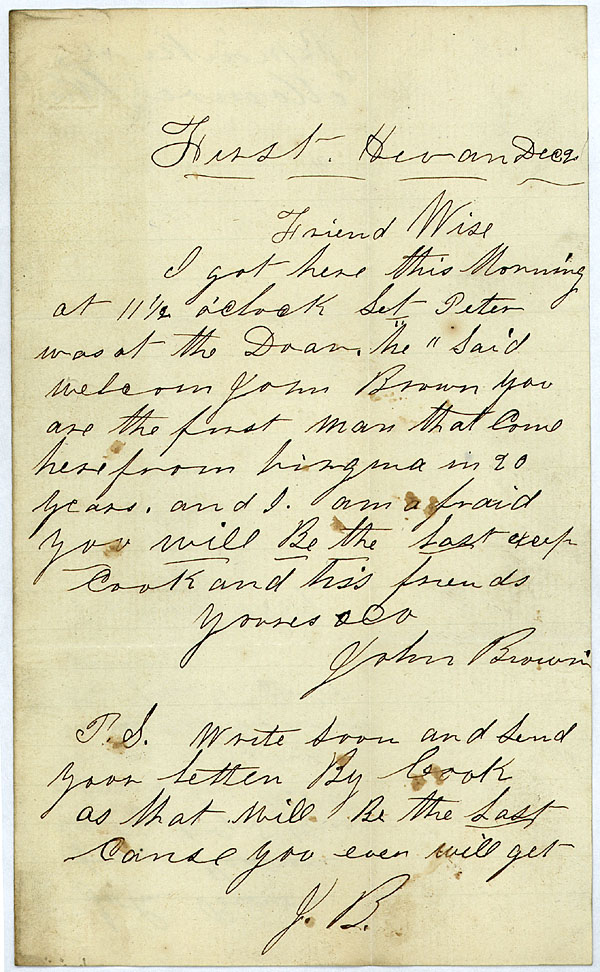 First. Hevan Dec 2
Friend Wise
I got here this Morning
at 11½ o'clock Set Peter
was at the Doar. "he" Said
welcom John Brown you
are the first man that Come
here from virginia in 20
years. and I. am afraid
you will Be the Last exep
Cook and his friends
yours &co
John Brown
P. S. Write soon and send
your letter By Cook
as that will Be the Last
Canse you ever will get
J. B.